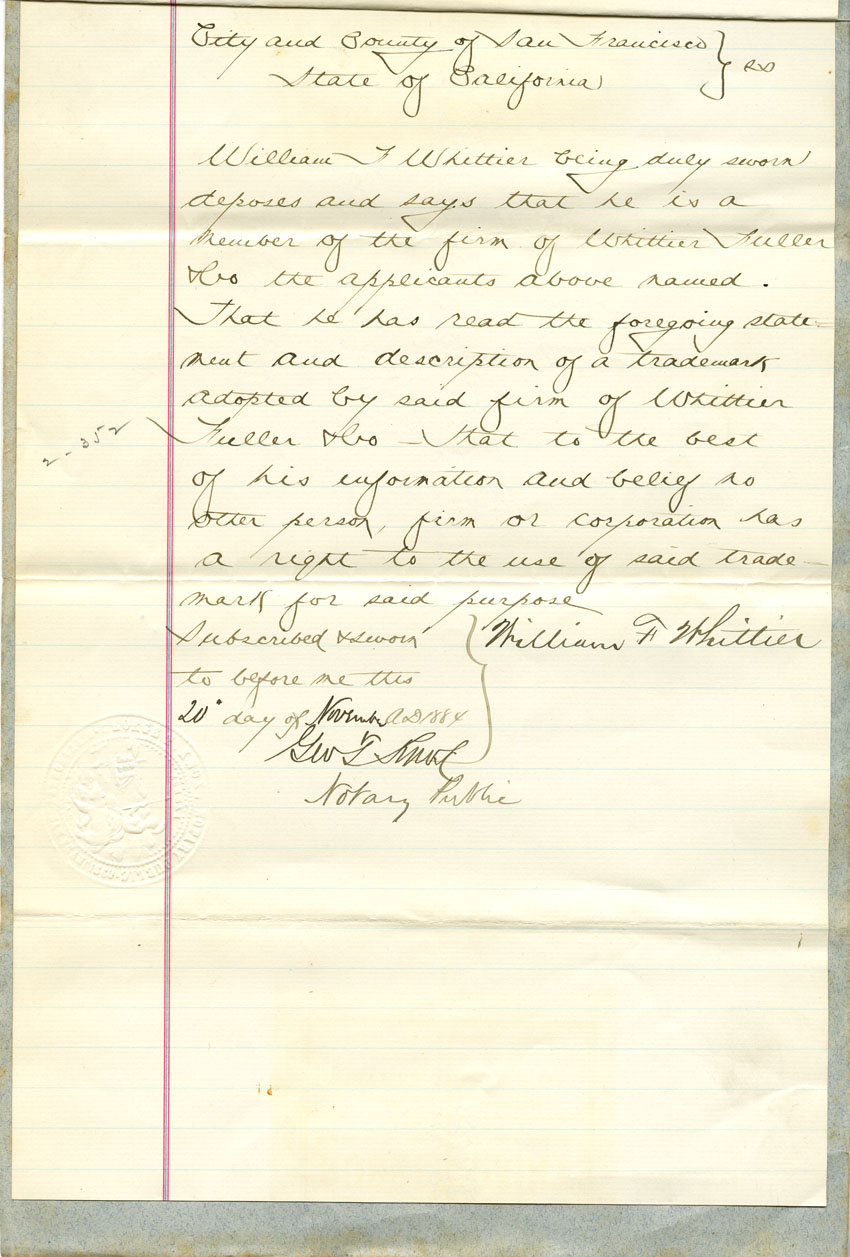 City and County of San Francisco } ss
State of California
William F Whittier being duly sworn
deposes and says that he is a
member of the firm of Whittier Fuller
& Co the applicants above named.
That he has read the foregoing state-
ment and description of a trademark
adopted by said firm of Whittier
Fuller & Co – That to the best
2-352
of his information and belief no
other person, firm or corporation has
a right to the use of said trade-
mark for said purpose
William F Whittier
Subscribed & sworn
to before me this
20" day of November AD 1884
Geo T Knox
Notary Public